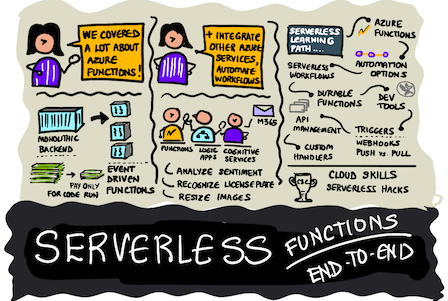 WE COVERED
A LOT ABOUT
AZURE
FUNCTIONS!
MONOLITHIC
BACKEND
EVENT
DRIVEN
FUNCTIONS
PAY ONLY
FOR CODE RUN
+ INTEGRATE
OTHER AZURE
SERVICES,
AUTOMATE
WORKFLOWS
M365
FUNCTIONS
LOGIC
APPS
COGNITIVE
SERVICES
ANALYZE SENTIMENT
RECOGNIZE LICENSE PLATE
RESIZE IMAGES
SERVERLESS
LEARNING
PATH....
AZURE
FUNCTIONS
SERVERLESS
WORKFLOWS
AUTOMATION
OPTIONS
DURABLE
FUNCTIONS
DEV
TOOLS
API
MANAGEMENT
TRIGGERS
WEBHOOKS
PUSH vs. PULL
CUSTOM
HANDLERS
CLOUD SKILLS
SERVERLESS HACKS
SERVERLESS
FUNCTIONS
END-TO-END